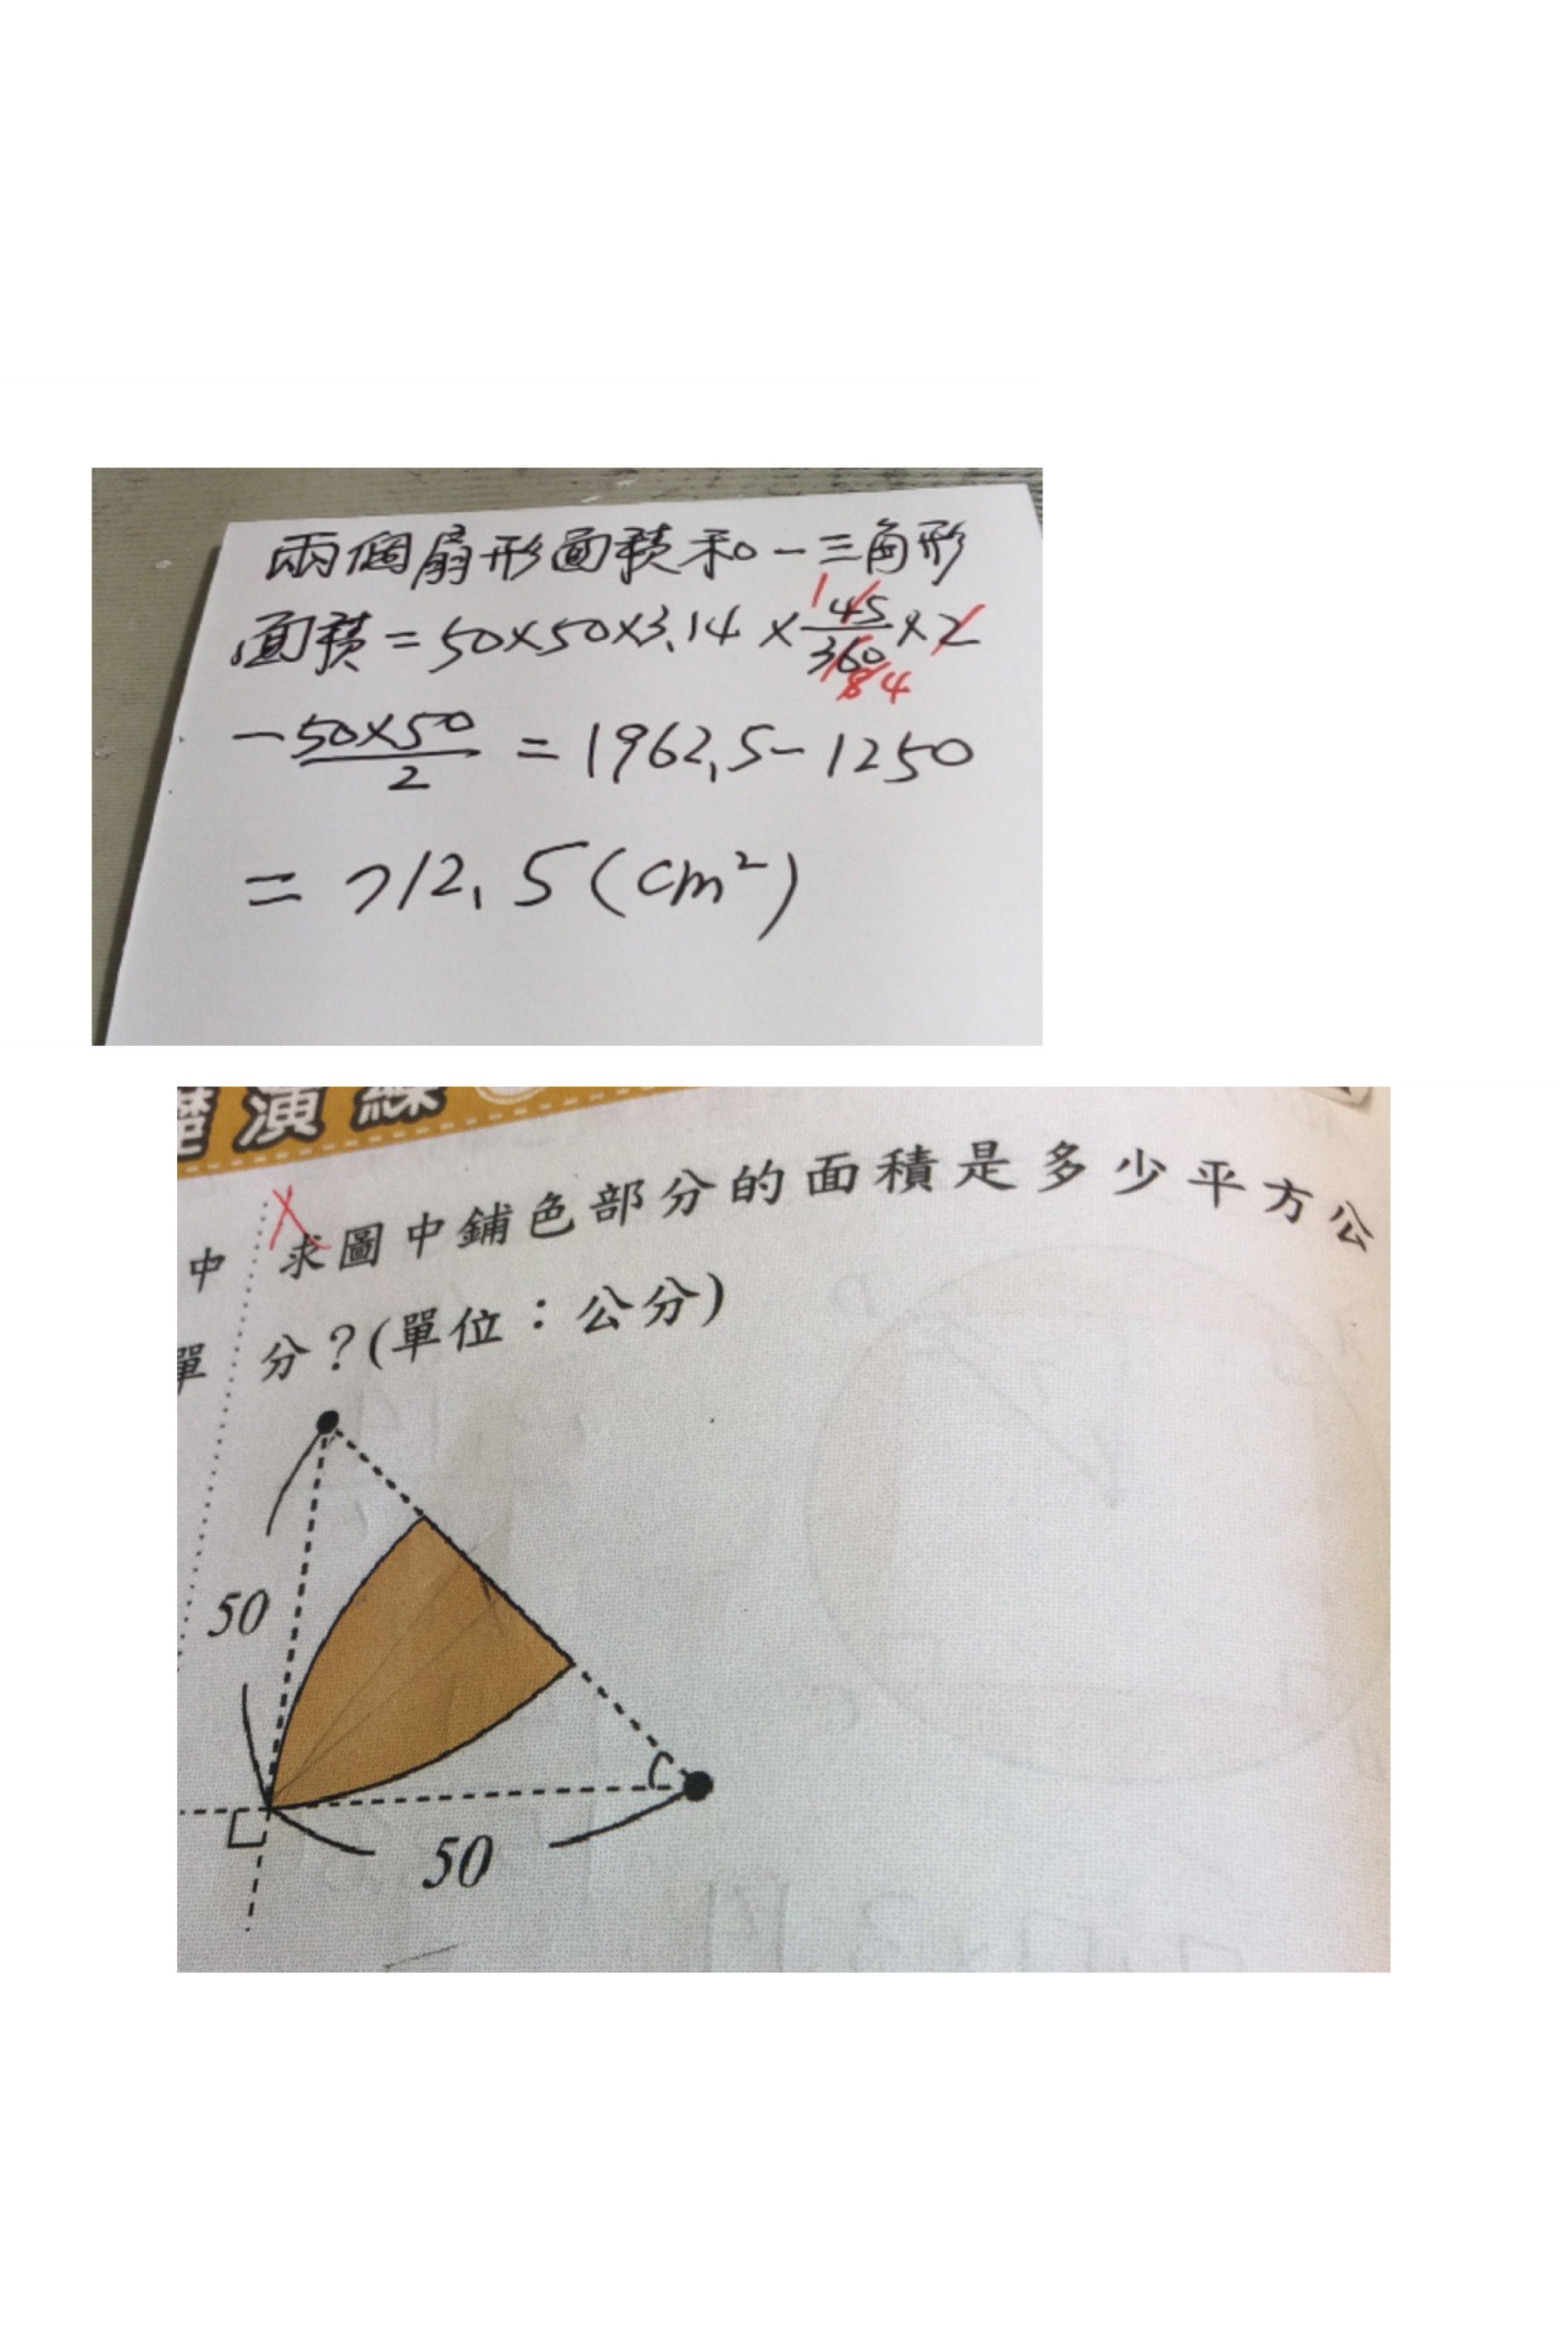 兩個扇形面積和-三角形
面積=50×50×3.14×45/360×2
1
8 4
-50×50/2=1962.5-1250
=712.5(cm²)
礎演練
中 求圖中鋪色部分的面積是多少平方公
單 分?(單位:公分)
50
50